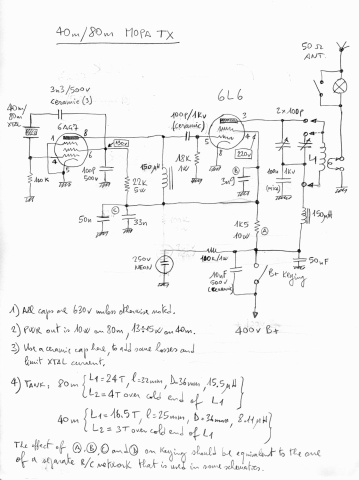 40m/80m MOPA TX
50Ω
ANT.
3n3/500V
ceramic (3)
6L6
40m/
80m
XTAL
6AG7
100p/1kV
(ceramic)
2x100p
8
6
5
150V
3
8
5
4
220V
L1
L2
100K
100P
500V
150µH
18K
1W
B
3n9
100p
1kV
(mica)
22K
5W
150µH
50n
C
33n
1K5
10W
A
250V
NEON
100K/1W
10nF
500V
50nF
B+ Keying
400V B+
1) All caps are 630V unless otherwise noted.
2) PWR out is 10W on 80m, 13÷15W on 40m.
3) Use a ceramic cap here, to add some losses and
limit XTAL current.
4) TANK, 80m { L1=24T, l=32mm, D=36mm, 15.5µH
L2=4T over cold end of L1
40m { L1=16.5T, l=25mm, D=36mm, 8.11µH
L2=3T over cold end of L1
The effect of A, B, C and D on keying should be equivalent to the one
of a separate R/C network that is used in some schematics.